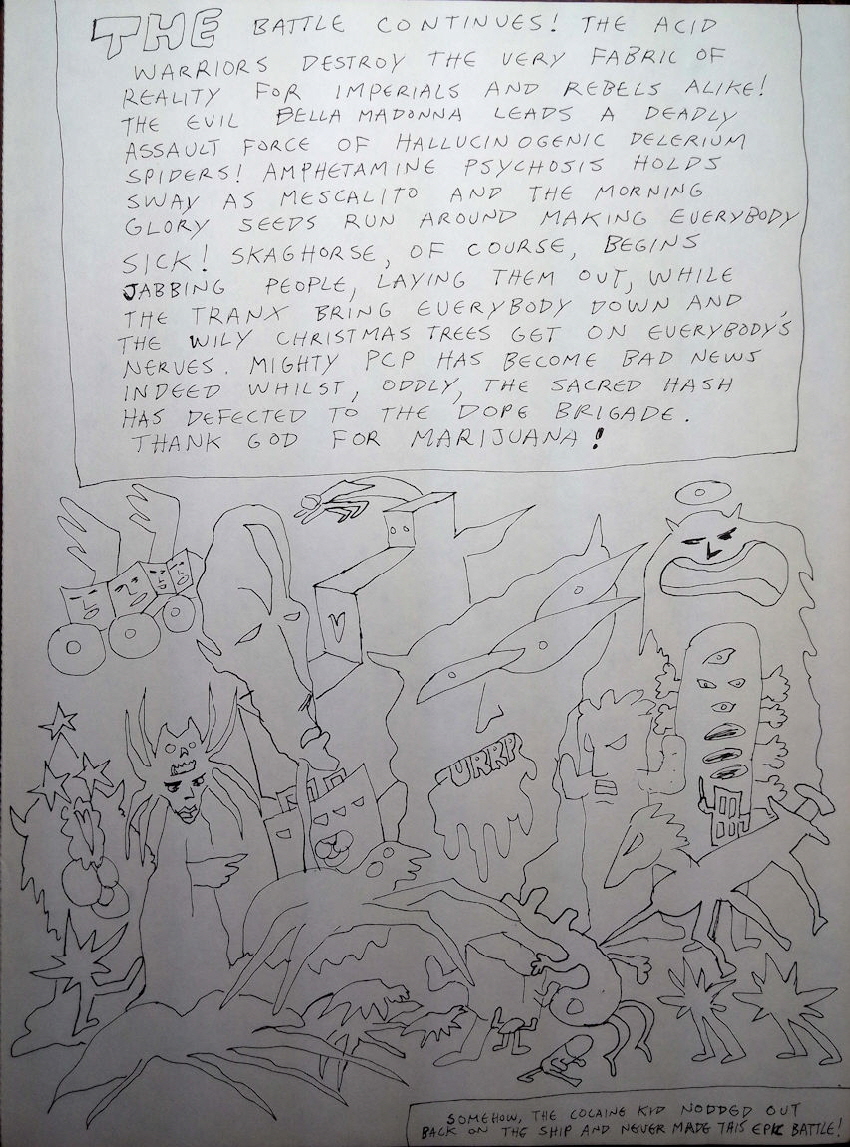 THE BATTLE CONTINUES! THE ACID
WARRIORS DESTROY THE VERY FABRIC OF
REALITY FOR IMPERIALS AND REBELS ALIKE!
THE EVIL BELLA MADONNA LEADS A DEADLY
ASSAULT FORCE OF HALLUCINOGENIC DELERIUM
SPIDERS! AMPHETAMINE PSYCHOSIS HOLDS
SWAY AS MESCALITO AND THE MORNING
GLORY SEEDS RUN AROUND MAKING EVERYBODY
SICK! SKAGHORSE, OF COURSE, BEGINS
JABBING PEOPLE, LAYING THEM OUT, WHILE
THE TRANX BRING EVERYBODY DOWN AND
THE WILY CHRISTMAS TREES GET ON EVERYBODY'S
NERVES. MIGHTY PCP HAS BECOME BAD NEWS
INDEED WHILST, ODDLY, THE SACRED HASH
HAS DEFECTED TO THE DOPE BRIGADE.
THANK GOD FOR MARIJUANA!
URRP
SOMEHOW, THE COCAINE KID NODDED OUT
BACK ON THE SHIP AND NEVER MADE THIS EPIC BATTLE!